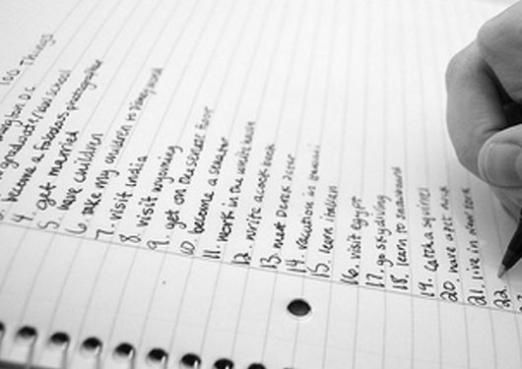 100 Things
4. become a fabulous photographer
5. get married
6. have children
7. take my children to Disney world
8. visit India
9. visit wyoming
10. get on the senate floor
become a senator
11. work in the white house
12. write a cook book
13. meet Derek Jeter
14. vacation in
15. learn italian
16. visit Egypt
17. go skydiving
18. learn to snowboard
19. catch a squirrel
20. have a pet
21. live in new york
22.